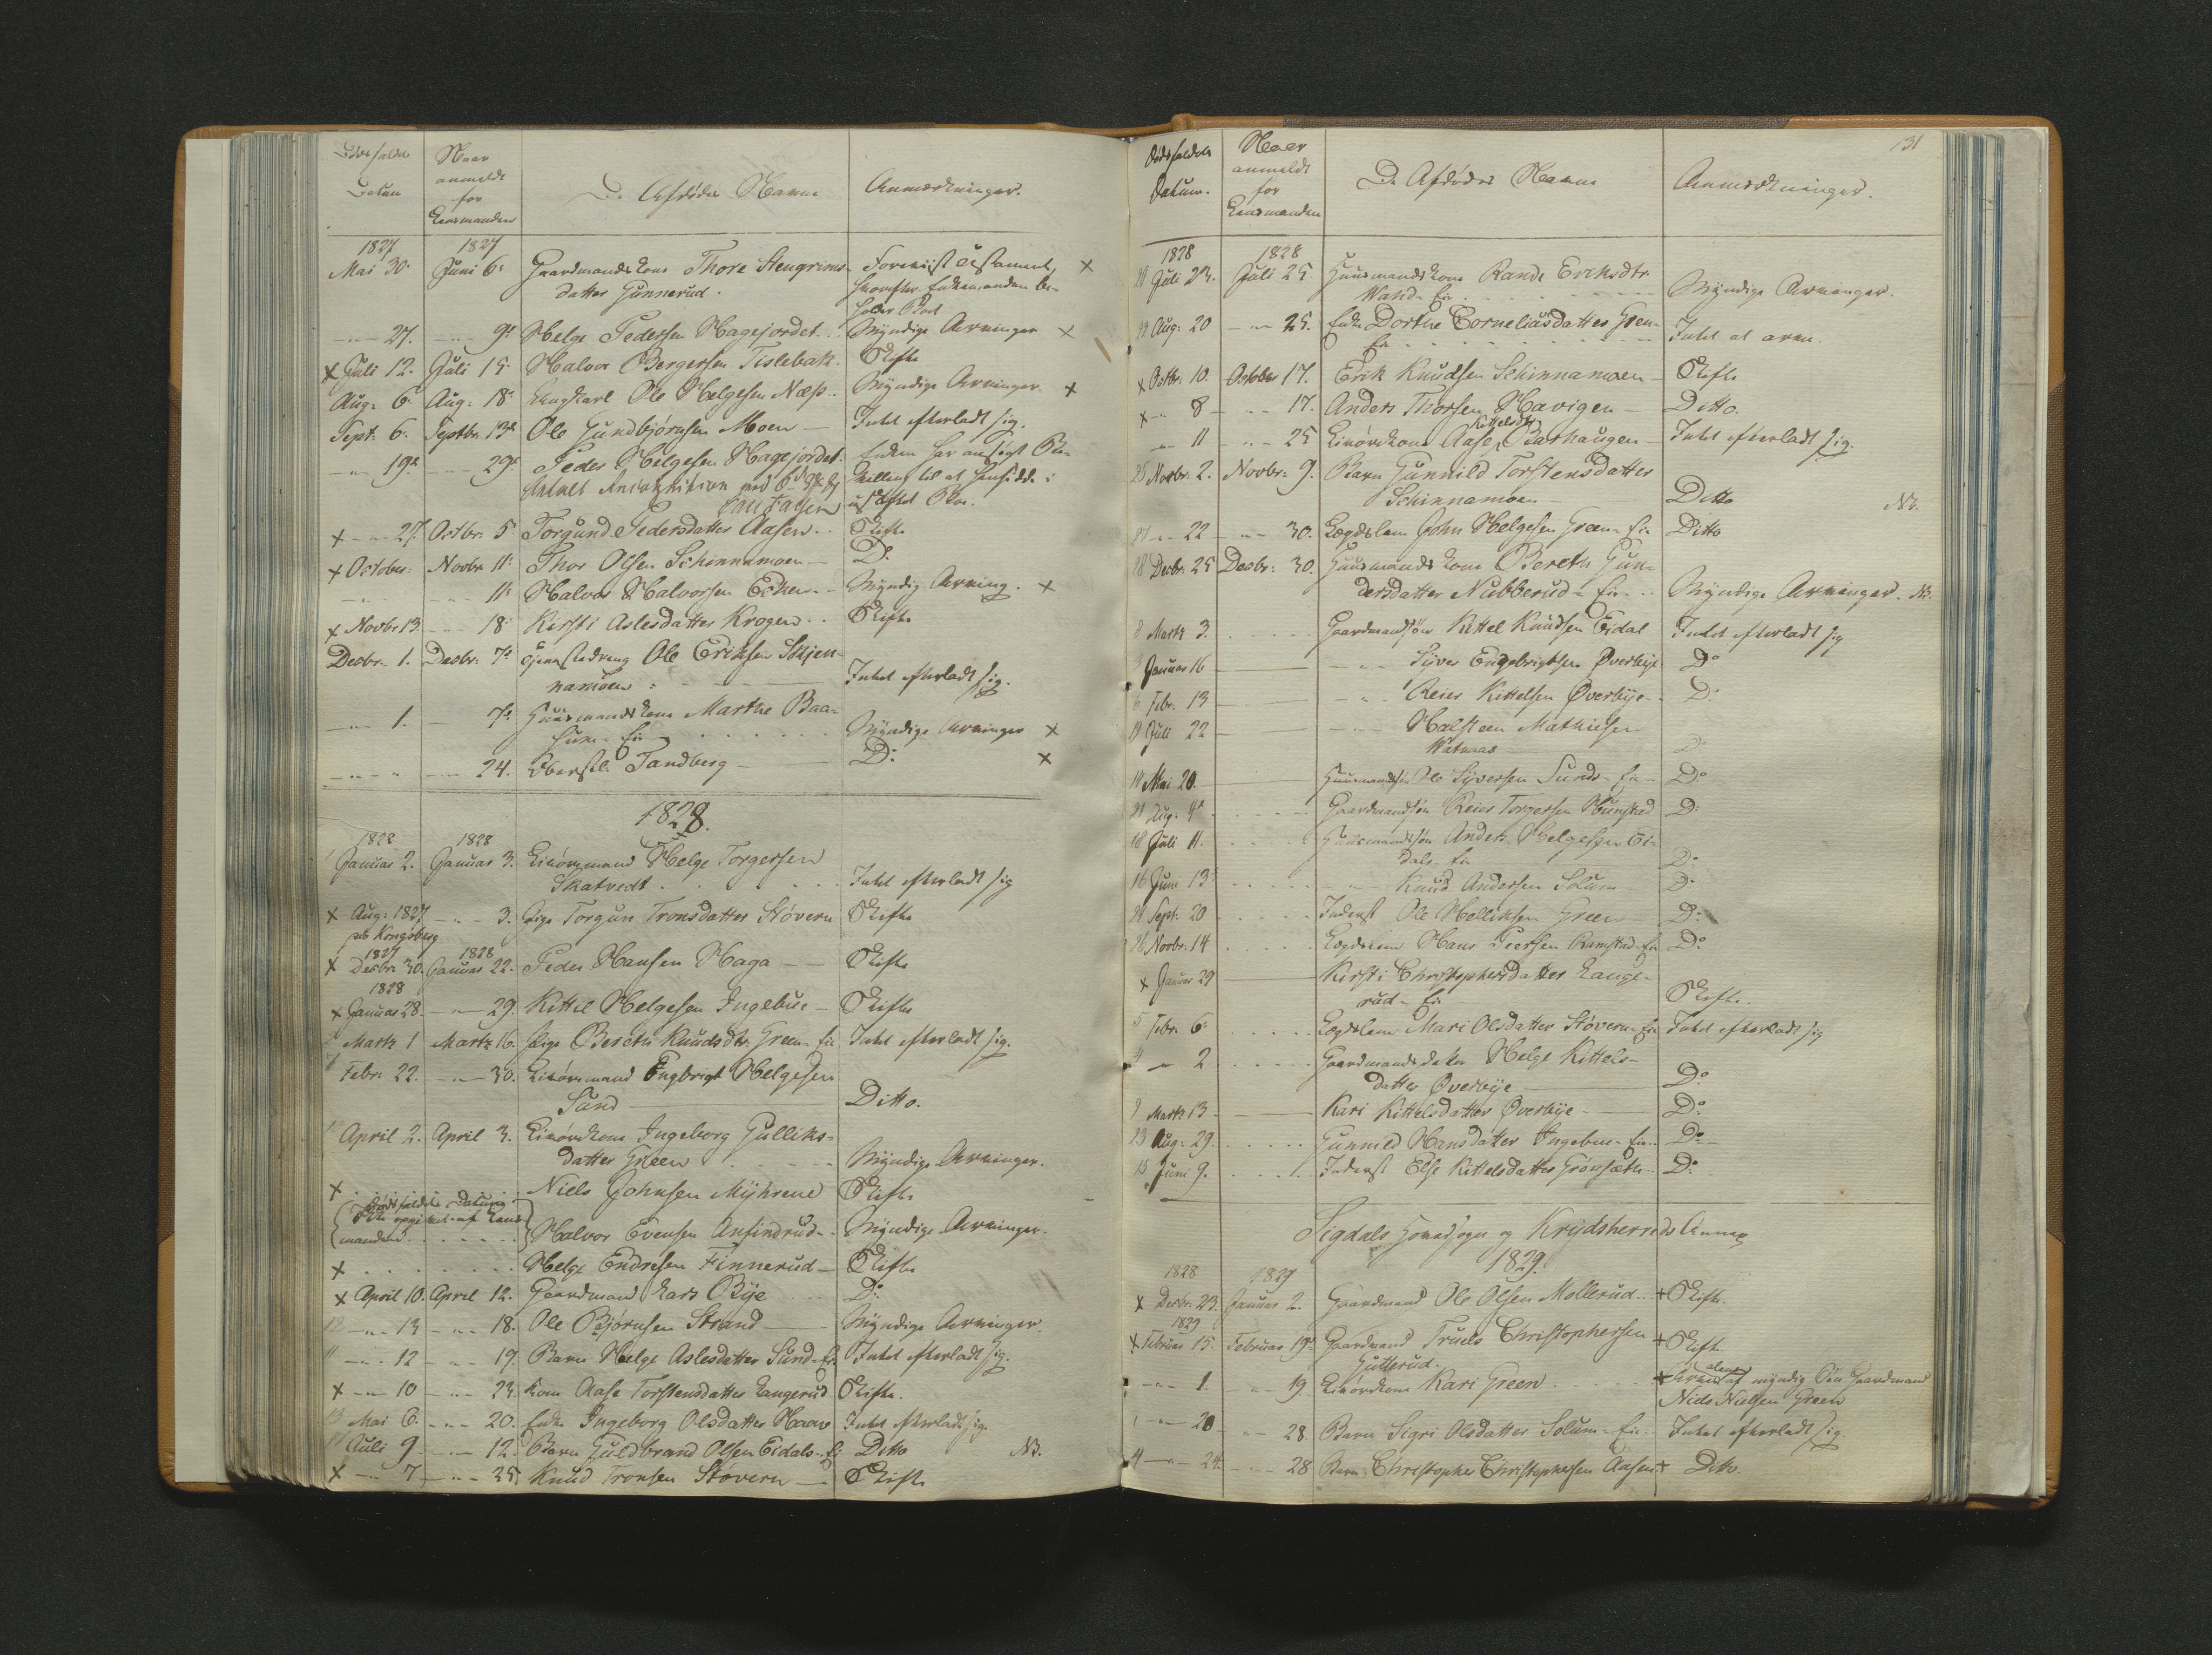 Dødsfaldets
Datum
Naar
anmeldt
for
Lensmanden
De Afdødes Navne
Anmærkninger.
1827 1827
Mai 30. Juni 6. Gaardmandskone Thore Stengrims- Foreviist Testament, ×
datter Gunnerud. hvorefter Enkemanden be-
holder Boet
-"- 27. -"- 9de Helge Pedersen Hagejordet.. Myndige Arvinger ×
× Juli 12. Juli 15. Halvor Bergersen Tislebak. Skifte
Aug. 6. Aug. 18. Ungkarl Ole Helgesen Næss.. Myndige Arvinger ×
Sept. 6. Septbr. 13de Ole Gundbjørnsen Moen — Intet efterladt sig.
-"- 19de -"- 29de Peder Helgesen Hagejordet. Enken har ansøgt Be-
villing til at hensidde i
uskiftet Boe.
× -"- 27. Octbr. 5 Torgund Pedersdatter Aasen.. Skifte
× October. Novbr. 11. Thor Olsen Schinnamoen — Do
-"- -"- 11. Halvor Halvorsen Eker.. Myndig Arving. ×
× Novbr. 13. -"- 18. Kirsti Aslesdatter Krogen.. Skifte
Decbr. 1. Decbr. 7de Tjenestedreng Ole Eriksen Skjen-
namoen Intet efterladt sig.
-"- 1. — 7de Huusmandskone Marthe Baa-
hus- Eie Myndige Arvinger ×
-"- -"- 24. Oberstl. Tandberg — Do ×
1828.
1828 1828
Januar 2. Januar 3. Livørsmand Helge Torgersen
Skatvedt. Intet efterladt sig
× Aug. 1827 -"- 3. Pige Torgun Tronsdatter Støvern Skifte
paa Kongsberg
1827 1828
× Decbr. 30. Januar 22. Peder Hansen Haga — Skifte
1828
× Januar 28. -"- 29. Kittil Helgesen Ingebue — Skifte
Martz 1 Martz 16. Pige Berethe Knudsdtr. Green- Eie Intet efterladt sig.
Febr. 22. -"- 30. Livørsmand Engbrigt Helgesen
Sund — Ditto.
April 2. April 3. Livørskone Ingeborg Gulliks-
datter Green Myndige Arvinger.
× Niels Johnsen Myhrene Skifte
Dødsfaldets Datum
ikke opgivet af Lens-
manden Halvor Evensen Anfindrud.. Myndige Arvinger.
× Helge Endresen Finnerud — Skifte
× April 10. April 12. Gaardmand Lars Bye Do
12 -"- 13 -"- 18. Ole Bjørnsen Strand — Myndige Arvinger.
11 -"- 12 -"- 19. Barn Helge Aslesdatter Sund- Eie Intet efterladt sig.
× -"- 10 -"- 23. Kone Aase Torstensdatter Langerud Skifte.
13 Mai 6. -"- 20. Enke Ingeborg Olsdatter Haave Intet efterladt sig.
Juli 9 -"- 12. Barn Guldbrand Olsen Eidals- Ei Ditto NB.
× -"- 7 -"- 25. Knud Tronsen Støvern — Skifte
131
Dødsfaldets
Datum.
Naar
anmeldt
for
Lensmanden
De Afdødes Navne
Anmærkninger.
1828 1828
20 Juli 23. Juli 25 Huusmandskone Rande Eriksdtr.
Wand- Eie Myndige Arvinger.
22 Aug. 20 -"- 25. Enke Dorthe Corneliusdatter Green-
Eie Intet at arve.
× Octbr. 10. October 17. Erik Knudsen Schinnamoen — Skifte
× -"- 8 -"- 17. Anders Thorsen Havigen — Ditto.
-"- 11 -"- 25 Livørskone Aase Kittelsdtr Barhaugen — Intet efterladt sig.
25 Novbr. 2. Novbr. 9. Barn Gunnild Torstensdatter
Schinnamoen — Ditto NB.
27 -"- 22 -"- 30. Lægdslem John Helgesen Green- Eie Ditto
28 Decbr. 25 Decbr. 30. Huusmandskone Bereth Gun-
dersdatter Nubberud- Eie.. Myndige Arvinger. NB.
8 Martz 3. Gaardmandsøn Kittel Knudsen Eidal Intet efterladt sig
3 Januar 16 -"- Syver Engebrigtsen Overbye Do
6 Febr. 13 -"- Reier Kittelsen Øverbye.. Do
19 Juli 22 -"- Halsteen Mathiesen
Watnaas Do
14 Mai 20. Huusmandsøn Ole Syversen Sunds- Eie — Do
21 Aug. 4de Gaardmandsøn Reier Torgersen Hunstad Do
18 Juli 11. Huusmandsøn Anders Helgesen Ei-
dals- Eie Do
16 Juni 13 -"- Knud Andersen Solum — Do
24 Sept. 20 Inderst Ole Helliksen Green Do
26 Novbr. 14 Lægdslem Hans Peersen Ramstad- Eie Do
× Januar 29 Kirsti Christophersdatter Lange-
rud- Eie Skifte.
5 Febr. 6. Lægdslem Mari Olsdatter Støvern- Eie Intet efterladt sig
4 -"- 2 Gaardmandsdatter Helge Kittels-
datter Overbye — Do
9 Martz 13 Kari Kittelsdatter Overbye — Do
23 Aug. 29. Gunnild Hansdatter Ingebue- Eie.. Do
15 Juni 9. Inderst Else Kittelsdatter Grønsæth.. Do
Sigdals Hovedsogn og Krydsherreds Annex
1829.
1828 1829
× Decbr. 23. Januar 2. Gaardmand Ole Olsen Mollerud.. + Skifte.
1829
× Februar 15. Februar 19de Gaardmand Truels Christophersen + Skifte
Gutterud.
-"- 1. -"- 19. Livørskone Kari Green + Arves alene af myndig Søn Gaardmand
Niels Nielsen Green
-"- 20 -"- 28. Barn Sigri Olsdatter Solum- Eie.. Intet efterladt sig.
4 -"- 24. -"- 28 Barn Christopher Christophersen Aasen + Ditto.